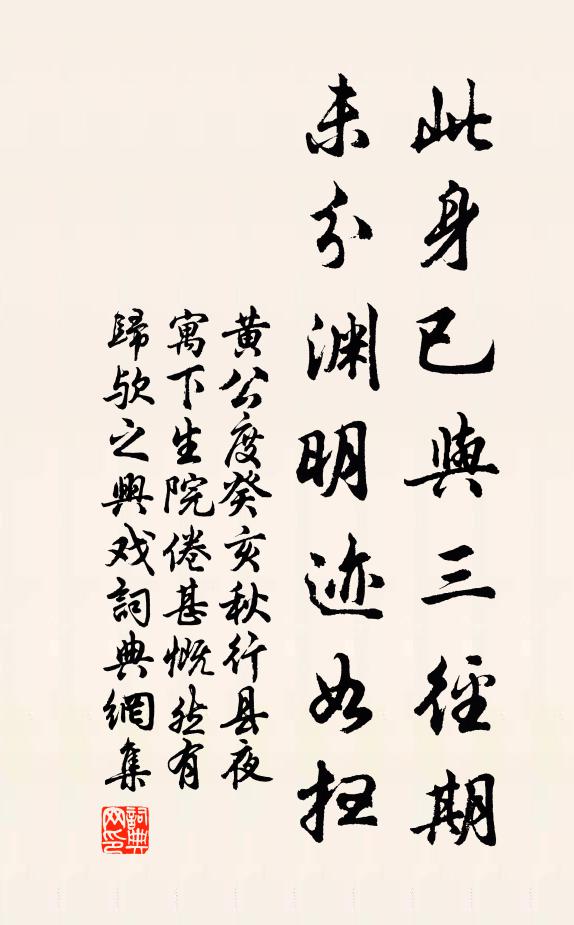 此身已與三徑期
未分渊明迹如扫
黄公度癸亥秋行县夜
寓下生院倦甚慨然有
歸欤之興戏詞典網集
詞典网印